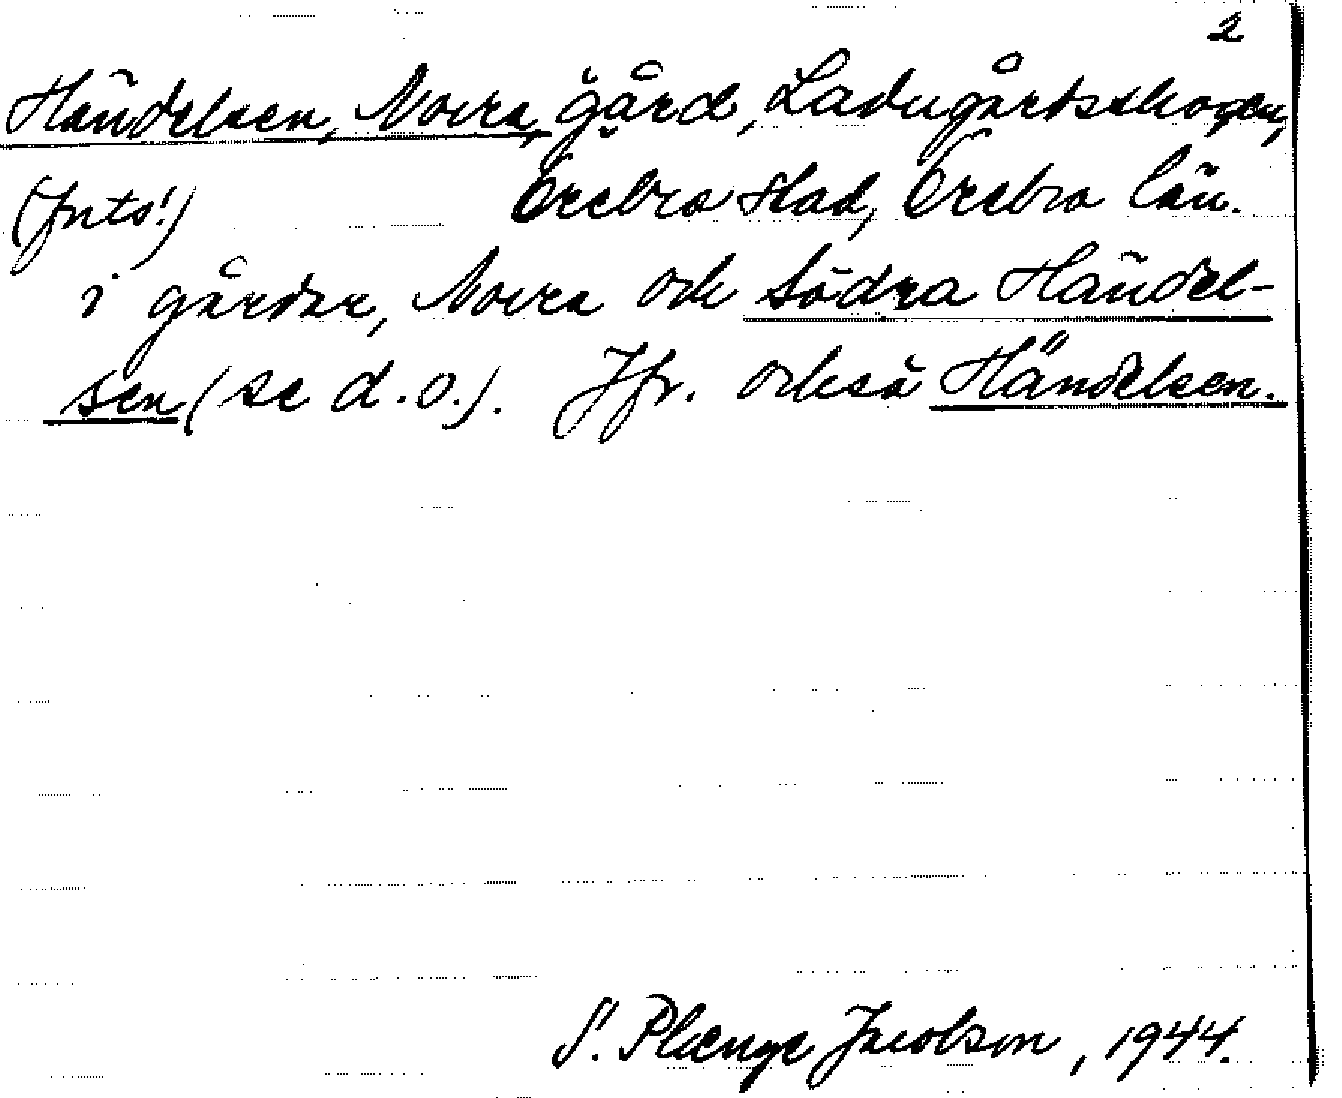 2
Händelsen, Norra, gård, Ladugårdsskogen,
(Jnts!) Örebro stad, Örebro län.
i gårdar, Norra och Södra Händel-
sen (se d.o.). Jfr. också Händelsen.
S. Plænge Jacobson, 1944.